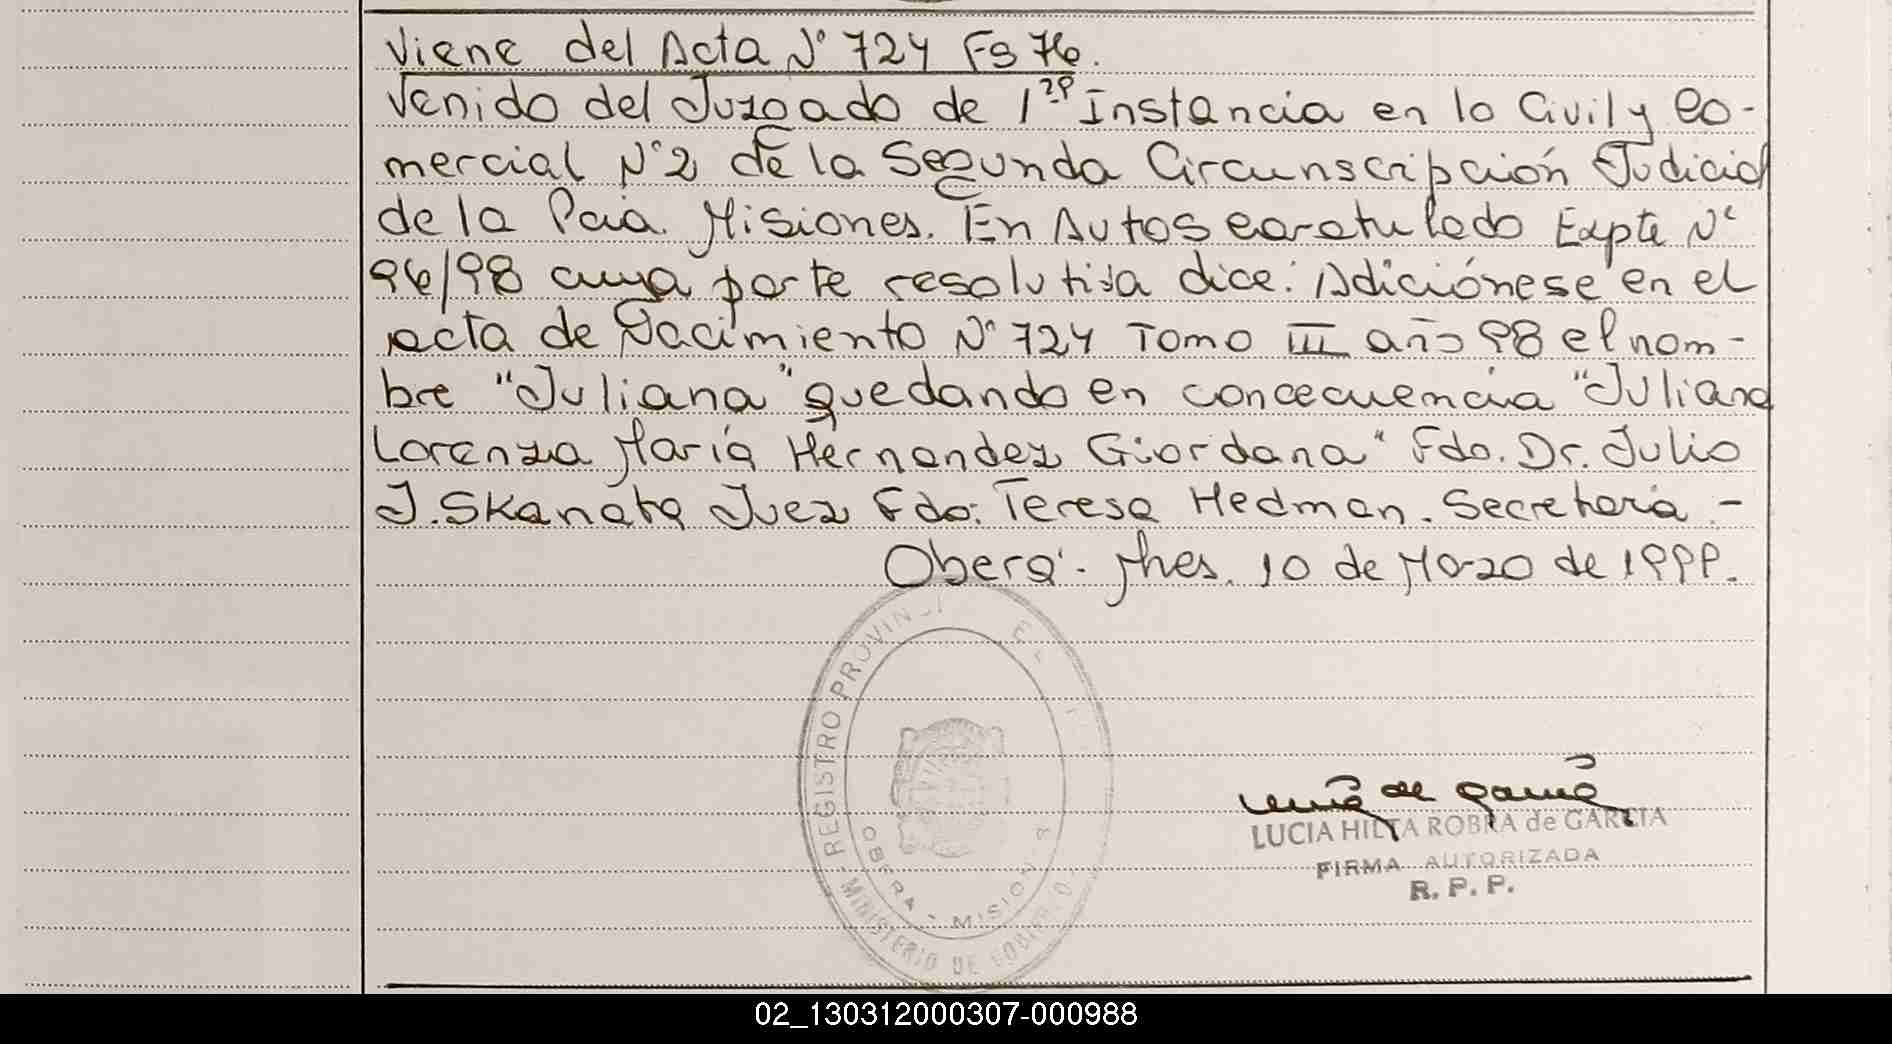 Viene del Acta Nº 724 Fs 76.
Venido del Juzgado de 1ra Instancia en lo Civil y Co-
mercial Nº 2 de la Segunda Circunscripción Judicial
de la Pcia. Misiones. En Autos caratulado Expte Nº
96/98 cuya parte resolutiva dice: Adiciónese en el
acta de Nacimiento Nº 724 Tomo III año 98 el nom-
bre "Juliana" quedando en concecuencia "Juliana
Lorenza María Hernandez Giordana" Fdo. Dr. Julio
J. Skanata Juez Fdo: Teresa Hedman. Secretaria.-
Oberá. Mnes. 10 de Marzo de 1999.
REGISTRO PROVIN
OBERA - MISIONES
MINISTERIO DE GOBIERNO
LUCIA HILTA ROBRA de GARCIA
FIRMA AUTORIZADA
R. P. P.
02_130312000307-000988